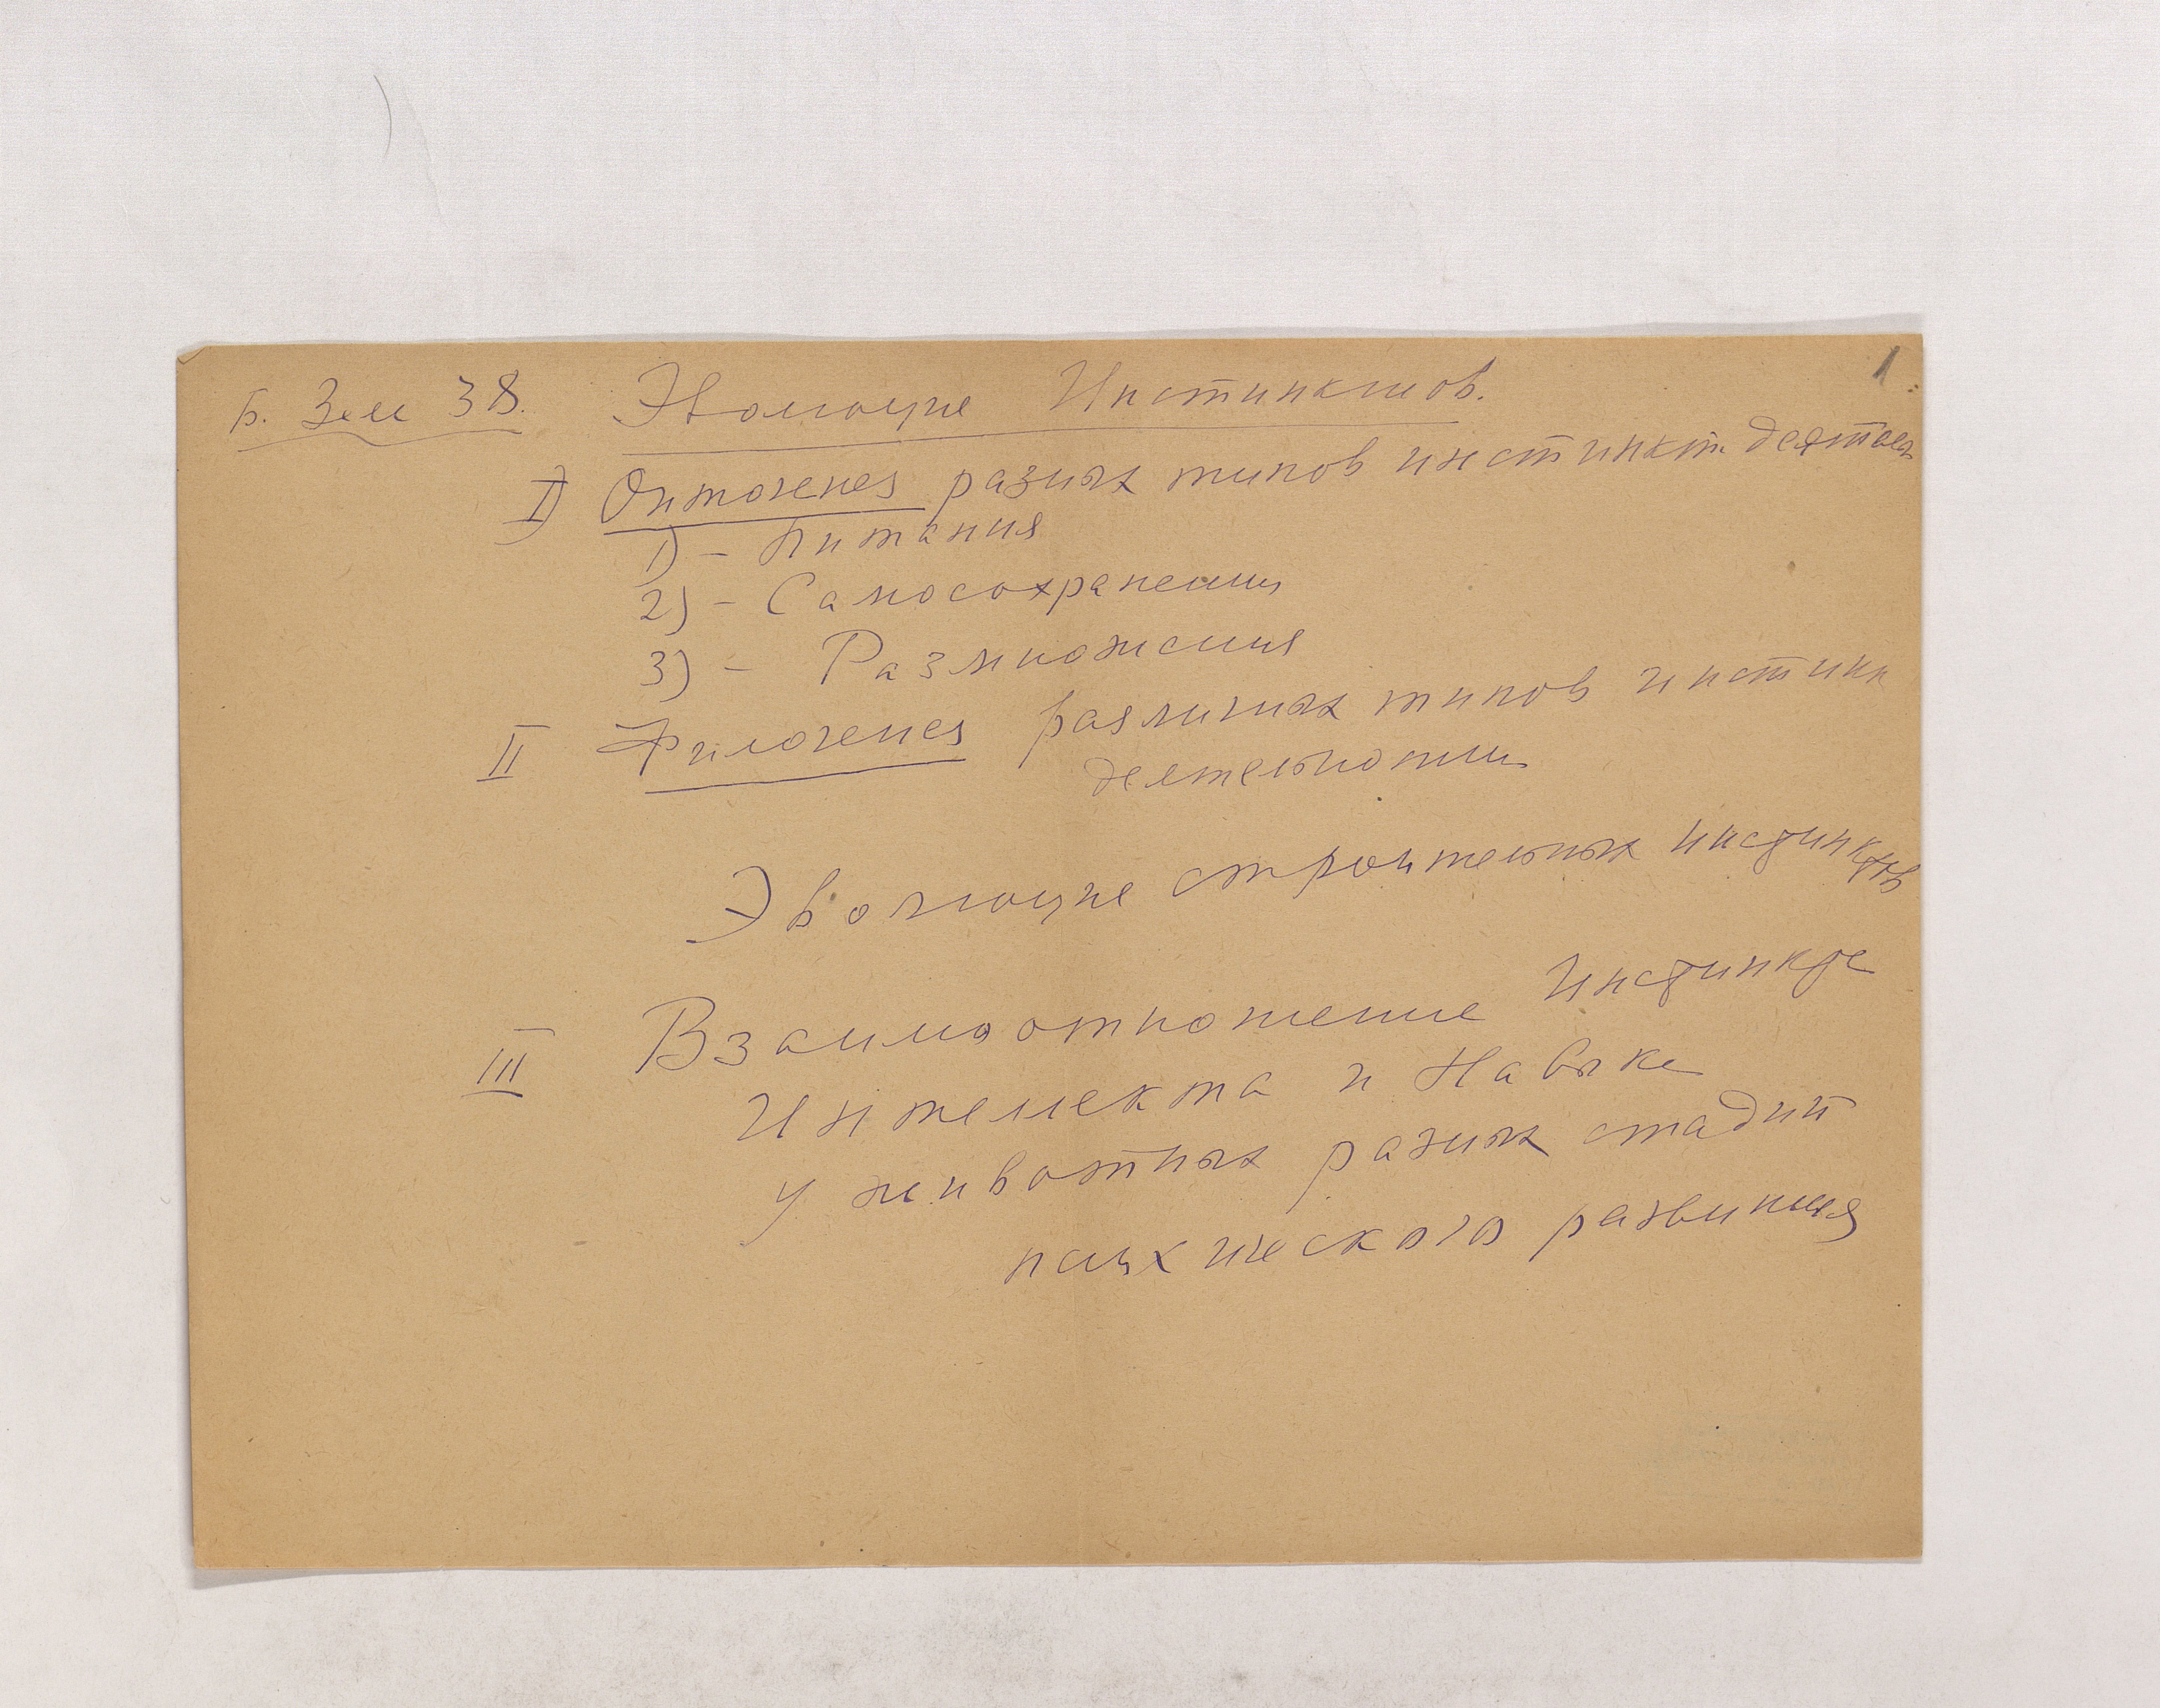 Б. Зал 38. Эволюция Инстинктов. 1
I) Онтогенез разных типов инстинкт. деятельн
1) - Питания
2) - Самосохранения
3) - Размножения
II Филогенез различных типов инстинк
деятельности
Эволюция строительных инстинктов
III Взаимоотношение Инстинкта
Интеллекта и Навыка
у животных разных стадий
психического развития